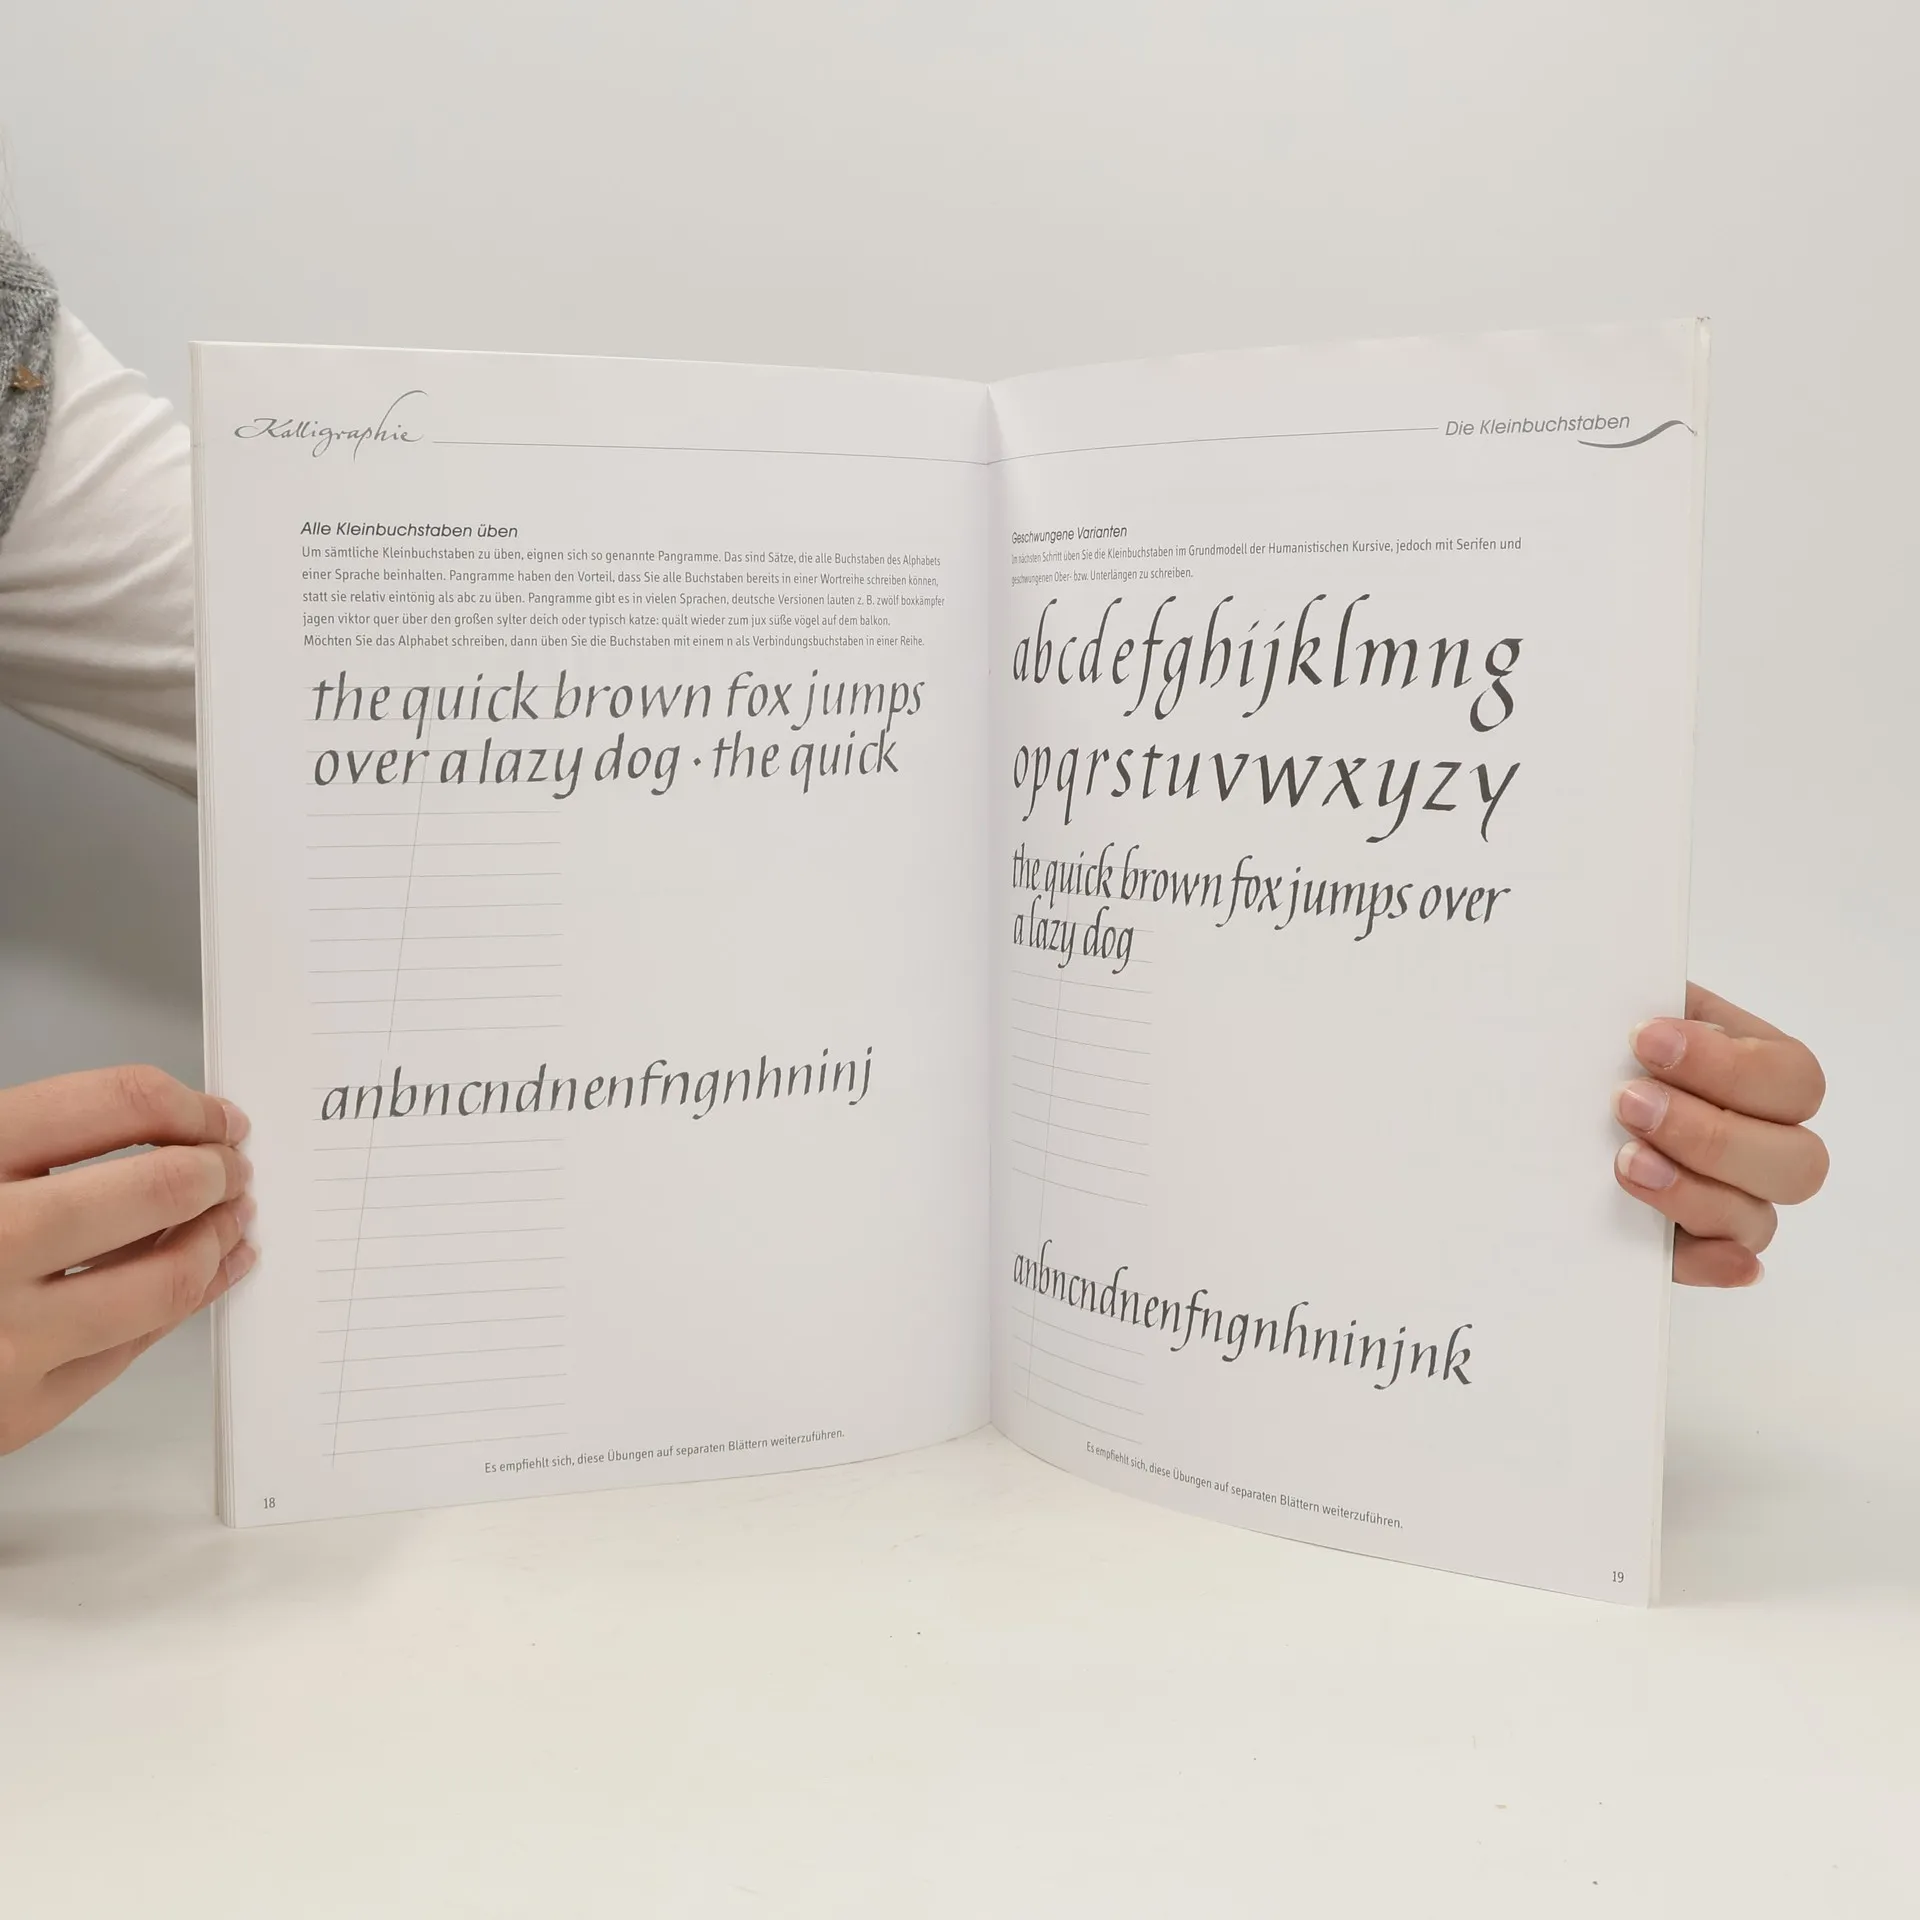 Kalligraphie
Alle Kleinbuchstaben üben
Um sämtliche Kleinbuchstaben zu üben, eignen sich so genannte Pangramme. Das sind Sätze, die alle Buchstaben des Alphabets
einer Sprache beinhalten. Pangramme haben den Vorteil, dass Sie alle Buchstaben bereits in einer Wortreihe schreiben können,
statt sie relativ eintönig als abc zu üben. Pangramme gibt es in vielen Sprachen, deutsche Versionen lauten z. B. zwölf boxkämpfer
jagen viktor quer über den großen sylter deich oder typisch katze: quält wieder zum jux süße vögel auf dem balkon.
Möchten Sie das Alphabet schreiben, dann üben Sie die Buchstaben mit einem n als Verbindungsbuchstaben in einer Reihe.
the quick brown fox jumps
over a lazy dog · the quick
anbncndnenfngnhninj
Es empfiehlt sich, diese Übungen auf separaten Blättern weiterzuführen.
18
Die Kleinbuchstaben
Geschwungene Varianten
Im nächsten Schritt üben Sie die Kleinbuchstaben im Grundmodell der Humanistischen Kursive, jedoch mit Serifen und
geschwungenen Ober- bzw. Unterlängen zu schreiben.
abcdefghijklmng
opqrstuvwxyzy
the quick brown fox jumps over
a lazy dog
anbncndnenfngnhninjnk
Es empfiehlt sich, diese Übungen auf separaten Blättern weiterzuführen.
19